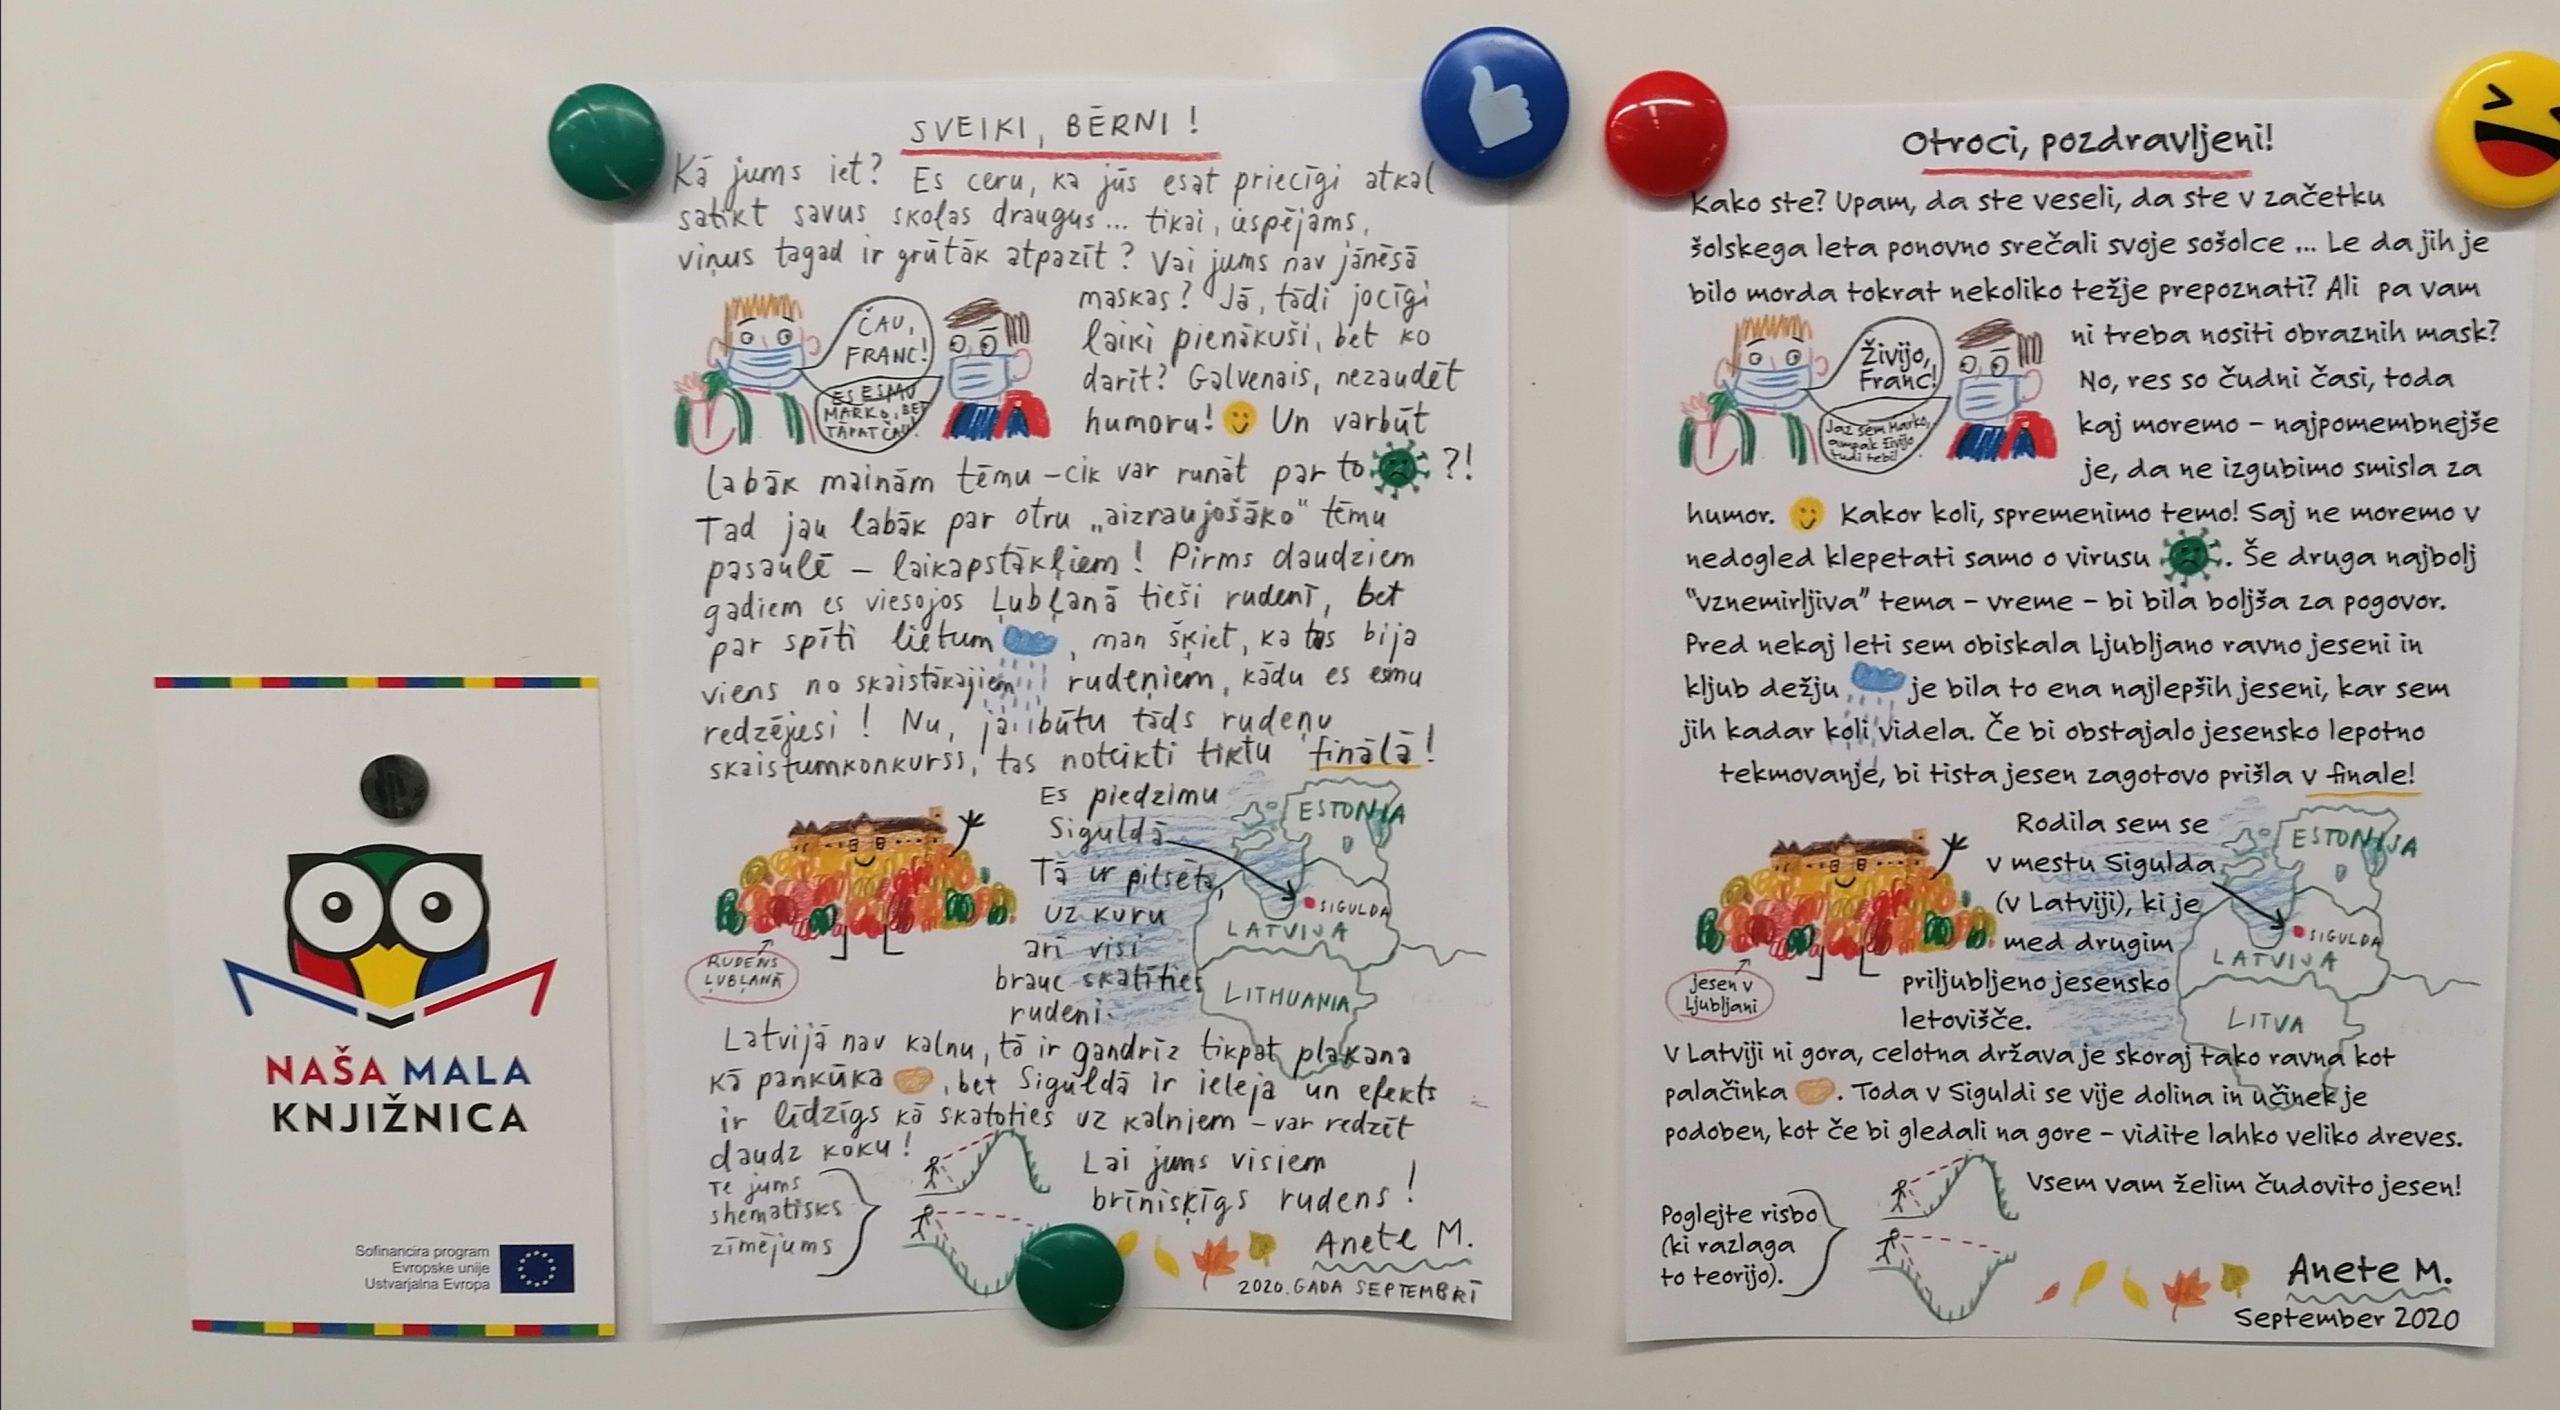 NAŠA MALA
KNJIŽNICA
Sofinancira program
Evropske unije
Ustvarjalna Evropa
SVEIKI, BĒRNI!
Kā jums iet? Es ceru, ka jūs esat priecīgi atkal
satikt savus skolas draugus... tikai, iespējams,
viņus tagad ir grūtāk atpazīt? Vai jums nav jānēsā
maskas? Jā, tādi jocīgi
laiki pienākuši, bet ko
darīt? Galvenais, nezaudēt
humoru! Un varbūt
ČAU,
FRANC!
ES ESMU
MARKO, BET
TĀPAT ČAU!
labāk mainām tēmu – cik var runāt par to ?!
Tad jau labāk par otru „aizraujošāko" tēmu
pasaulē – laikapstākļiem! Pirms daudziem
gadiem es viesojos Ļubļanā tieši rudenī, bet
par spīti lietum , man šķiet, ka tas bija
viens no skaistākajiem rudeņiem, kādu es esmu
redzējusi! Nu, ja būtu tāds rudeņu
skaistumkonkurss, tas noteikti tiktu finālā!
Es piedzimu
Siguldā
Tā ir pilsēta,
uz kuru
arī visi
brauc skatīties
rudeni.
RUDENS
ĻUBĻANĀ
ESTONIA
SIGULDA
LATVIJA
LITHUANIA
Latvijā nav kalnu, tā ir gandrīz tikpat plakana
kā pankūka , bet Siguldā ir ieleja un efekts
ir līdzīgs kā skatoties uz kalniem – var redzēt
daudz koku!
Te jums
shematisks
zīmējums
Lai jums visiem
brīnišķīgs rudens!
Anete M.
2020. GADA SEPTEMBRĪ
Otroci, pozdravljeni!
Kako ste? Upam, da ste veseli, da ste v začetku
šolskega leta ponovno srečali svoje sošolce ... Le da jih je
bilo morda tokrat nekoliko težje prepoznati? Ali pa vam
ni treba nositi obraznih mask?
No, res so čudni časi, toda
kaj moremo – najpomembnejše
je, da ne izgubimo smisla za
Živijo,
Franc!
Jaz sem Marko,
ampak živijo
tudi tebi!
humor. Kakor koli, spremenimo temo! Saj ne moremo v
nedogled klepetati samo o virusu . Še druga najbolj
"vznemirljiva" tema – vreme – bi bila boljša za pogovor.
Pred nekaj leti sem obiskala Ljubljano ravno jeseni in
kljub dežju je bila to ena najlepših jeseni, kar sem
jih kadar koli videla. Če bi obstajalo jesensko lepotno
tekmovanje, bi tista jesen zagotovo prišla v finale!
Rodila sem se
v mestu Sigulda
(v Latviji), ki je
med drugim
priljubljeno jesensko
letovišče.
jesen v
Ljubljani
ESTONIJA
SIGULDA
LATVIJA
LITVA
V Latviji ni gora, celotna država je skoraj tako ravna kot
palačinka . Toda v Siguldi se vije dolina in učinek je
podoben, kot če bi gledali na gore – vidite lahko veliko dreves.
Vsem vam želim čudovito jesen!
Poglejte risbo
(ki razlaga
to teorijo).
Anete M.
September 2020